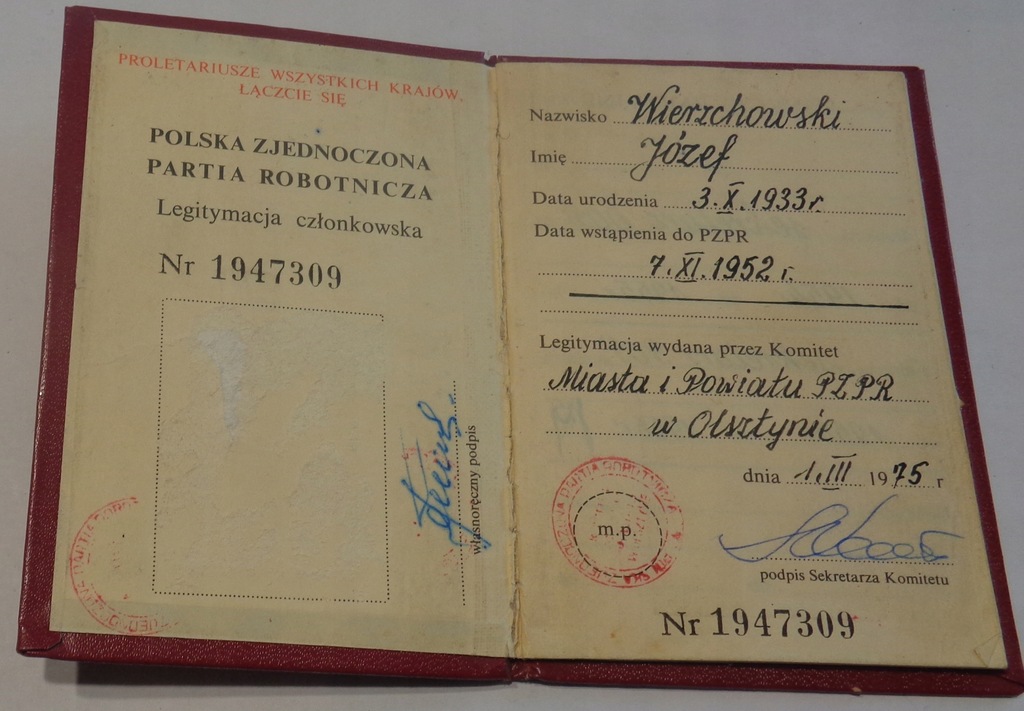 PROLETARIUSZE WSZYSTKICH KRAJÓW,
ŁĄCZCIE SIĘ
POLSKA ZJEDNOCZONA
PARTIA ROBOTNICZA
Legitymacja członkowska
Nr 1947309
własnoręczny podpis
Nazwisko Wierzchowski
Imię Józef
Data urodzenia 3.X.1933r.
Data wstąpienia do PZPR
7.XI.1952 r.
Legitymacja wydana przez Komitet
Miasta i Powiatu PZPR
w Olsztynie
dnia 1.III 1975 r
m.p.
podpis Sekretarza Komitetu
Nr 1947309